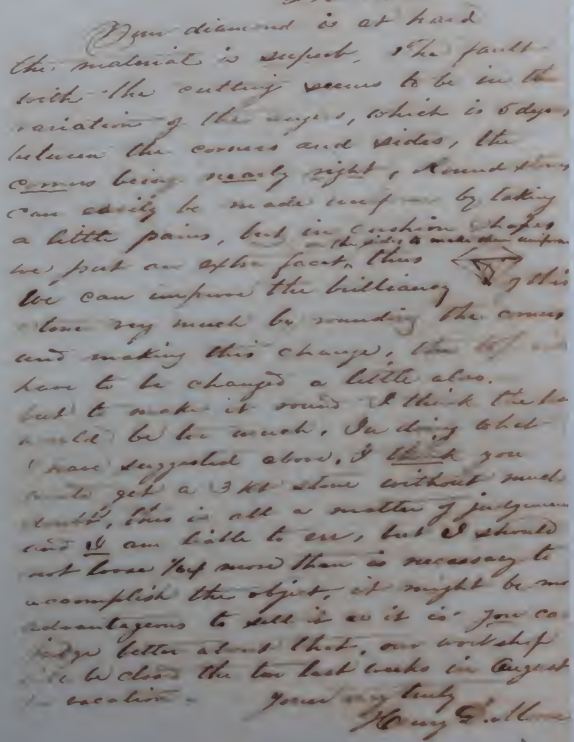 Your diamond is at hand
the material is superb, The fault
with the cutting seems to be in the
variation of the angles, which is 6 degs
between the corners and sides, the
corners being nearly right, Round stones
can easily be made uniform by taking
a little pains, but in cushion shapes
on the sides to make them uniform
we put an extra facet, thus
We can improve the brilliancy of this
stone very much by rounding the corners
and making this change, the
have to be changed a little also.
but to make it round I think the
would be too much, In doing what
I have suggested above, I think you
could get a 3 kt stone without much
doubt, this is all a matter of judgment
and I am liable to err, but I should
not loose 1/64 more than is necessary to
accomplish the object, it might be more
advantageous to sell it as it is you can
judge better about that, our workshop
will be closed the two last weeks in August
for vacation.
Yours very truly
Henry D. Morse